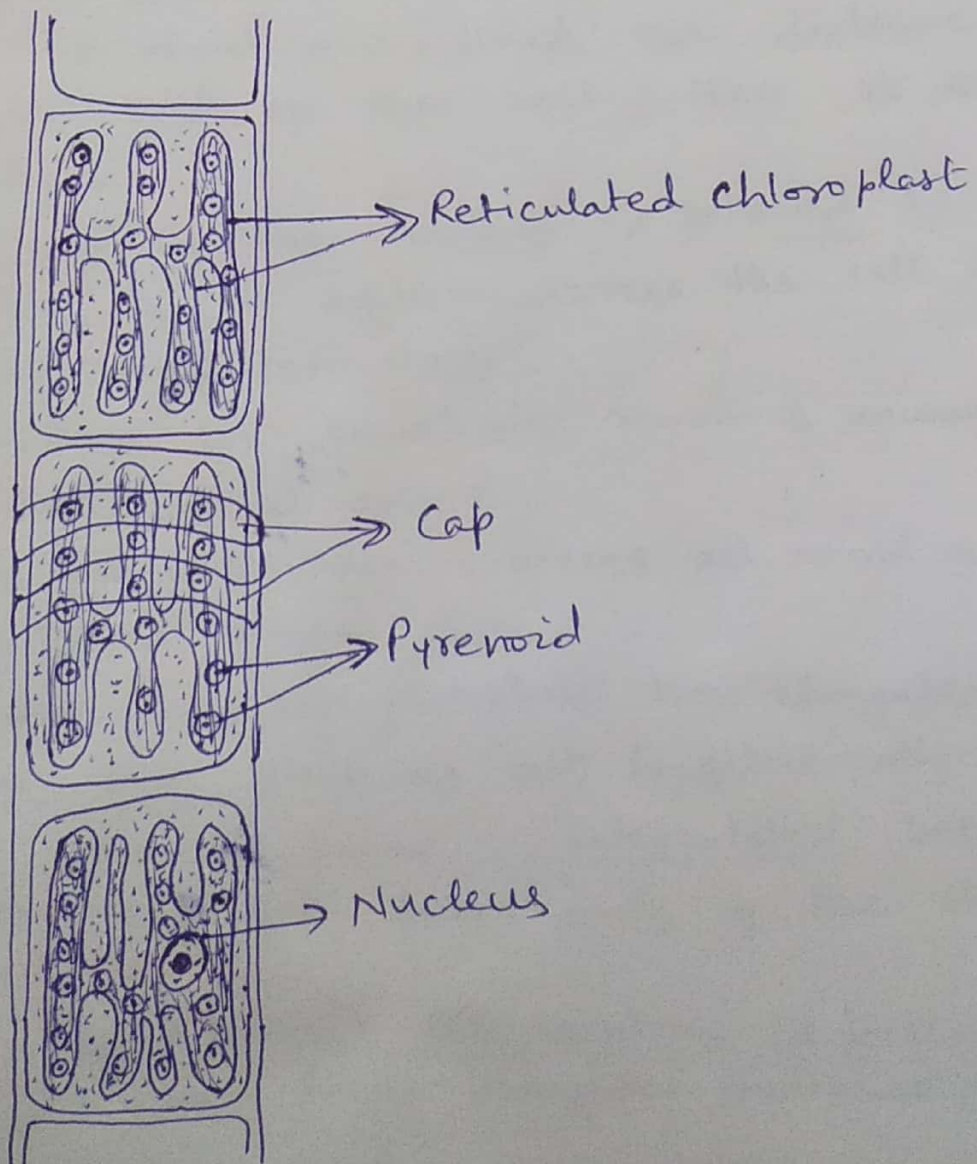 Reticulated chloroplast
Cap
Pyrenoid
Nucleus